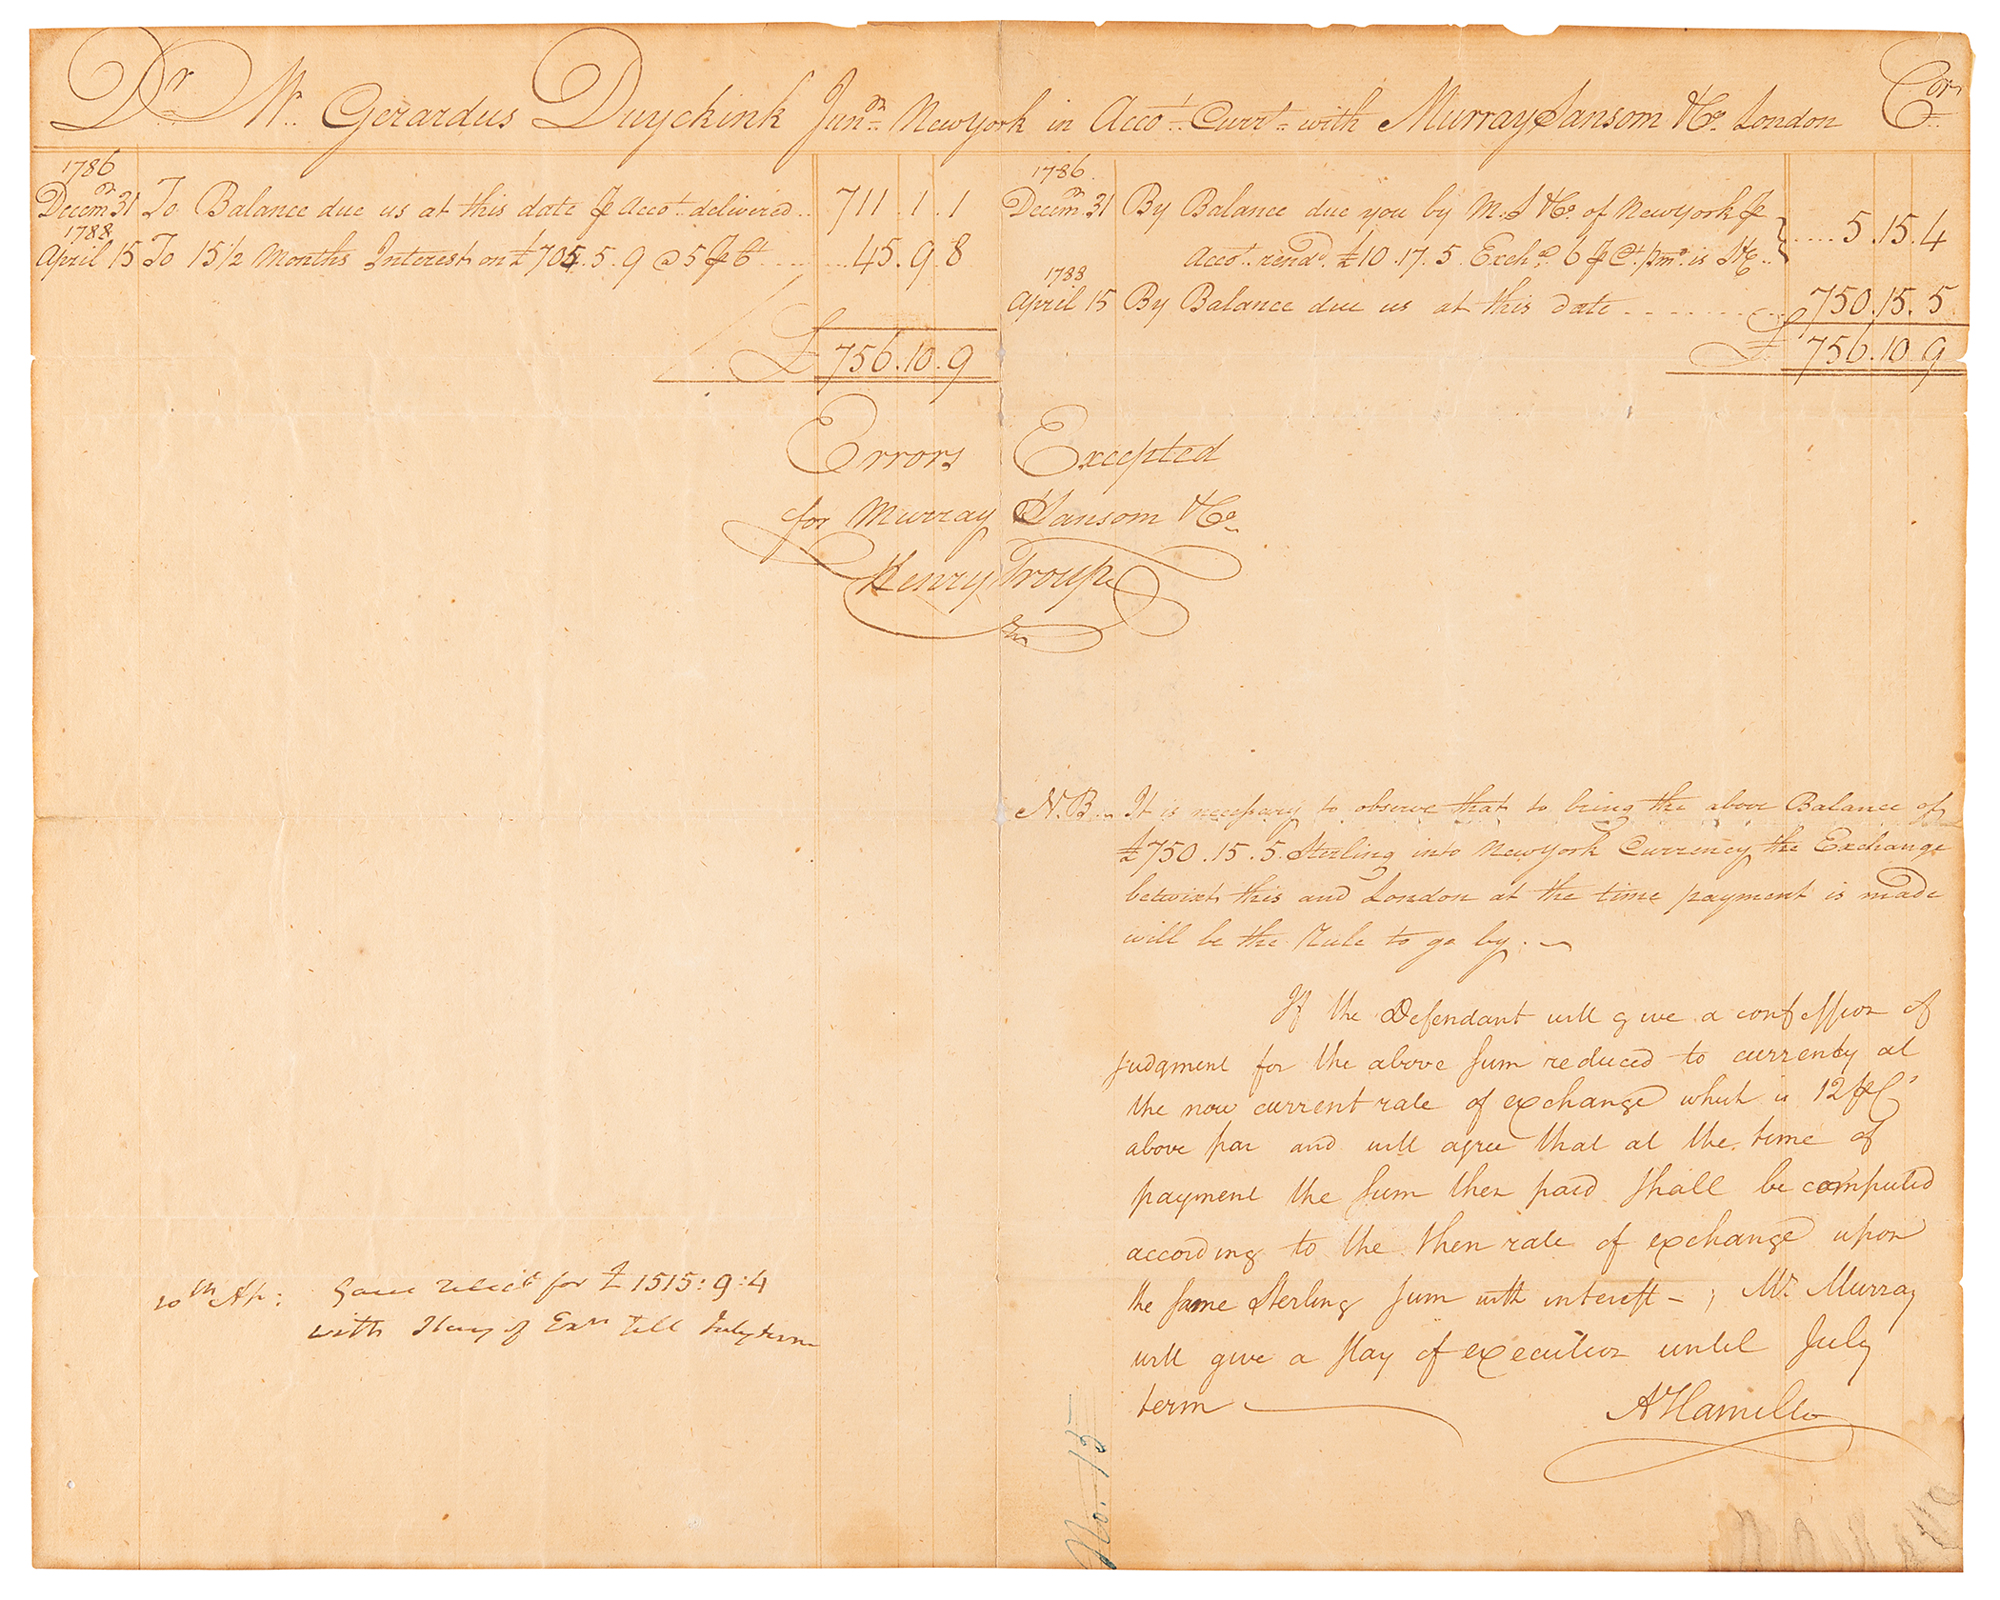 Dr Mr. Gerardus Duyckink Junr. New York in Accot. Currt. with Murray Sansom & Co. London Cor.
1786
Decemr. 31 To Balance due us at this date ⅌ Accot. delivered .. 711 . 1 . 1
1788
April 15 To 15 1/2 Months Interest on £705 . 5 . 9 @ 5 ⅌ Ct ..... 45 . 9 . 8
£ 756 . 10 . 9
1786.
Decemr. 31 By Balance due you by M. S & Co. of New York ⅌
Accot. rendd. £10 . 17 . 5 Exchd. 6 ⅌ Ct. is Stg .. .... 5 . 15 . 4
1788
April 15 By Balance due us at this date ........ 750 . 15 . 5
£ 756 . 10 . 9
Errors Excepted
for Murray Sansom & Co.
Henry Troup
N.B. It is necessary to observe that to bring the above Balance of
£750 . 15 . 5 Sterling into New York Currency the Exchange
betwixt this and London at the time payment is made
will be the Rule to go by.
If the Defendant will give a confession of
judgment for the above sum reduced to currency at
the now current rate of exchange which is 12 ⅌ Ct
above par and will agree that at the time of
payment the sum then paid shall be computed
according to the then rate of exchange upon
the same Sterling sum with interest - ; Mr. Murray
will give a stay of execution until July
term
A Hamilton
10th Ap: for £ 1515 : 9 : 4
with Stay of Exn till July term
No. 15